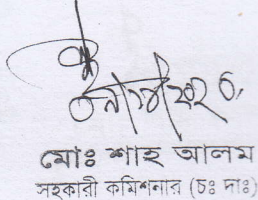 মোঃ শাহ আলম
সহকারী কমিশনার (চঃ দাঃ)